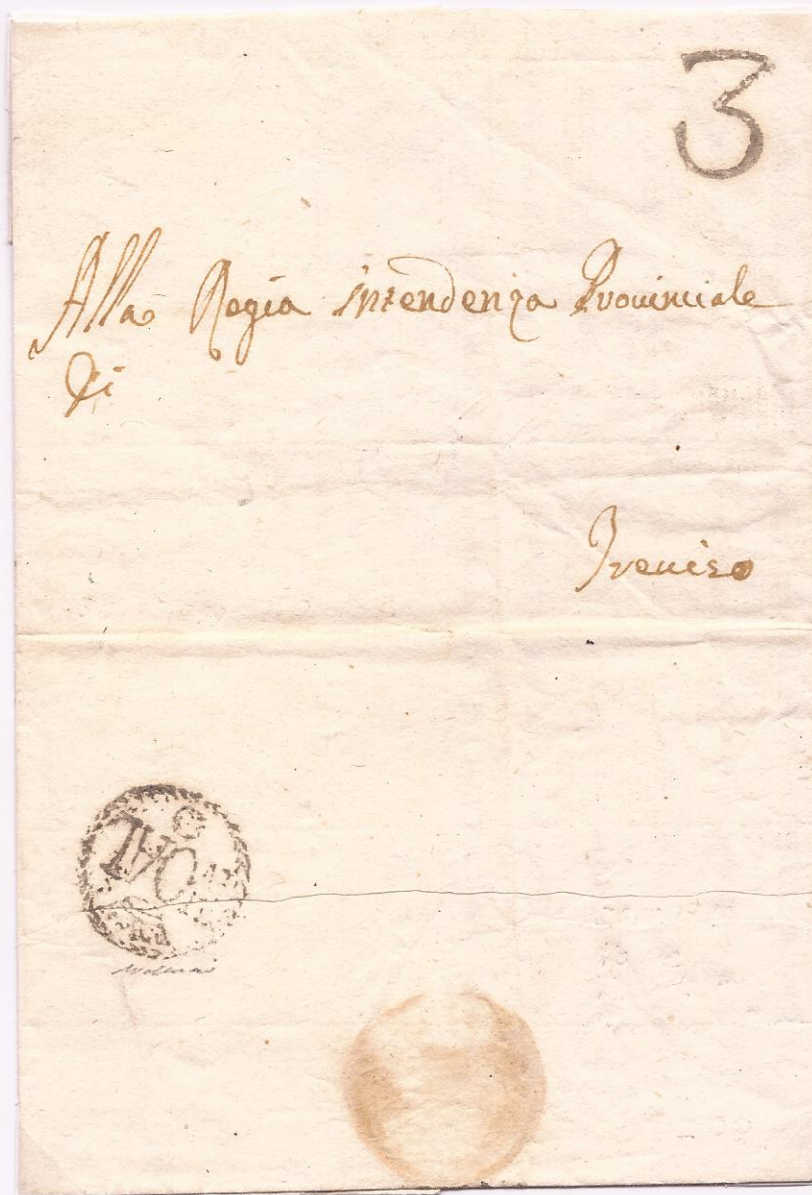 3
Alla Regia intendenza Provinciale
Di
Treviso